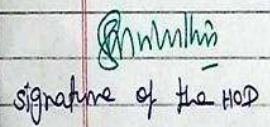 signature of the HOD